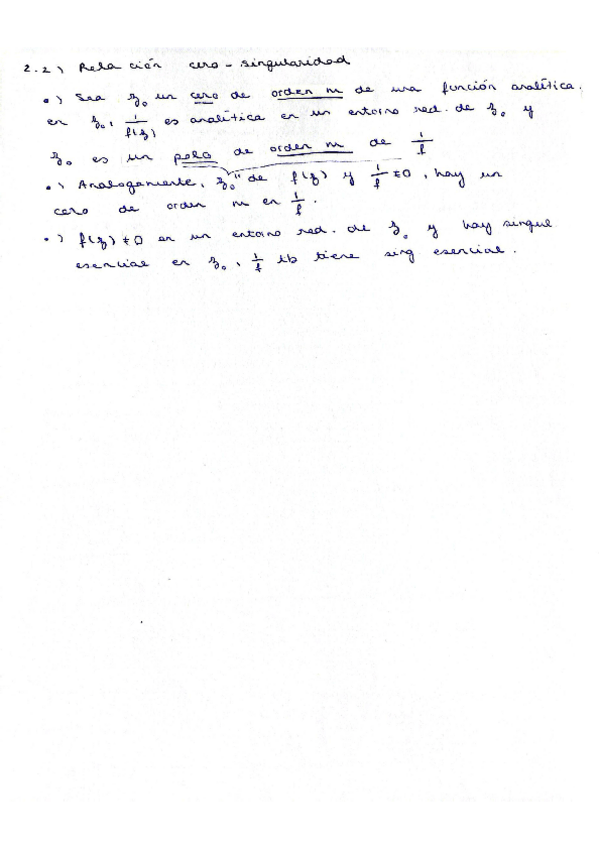 2.2) Relación cero - singularidad
•) Sea z₀ un cero de orden m de una función analítica.
en z₀, 1/f(z) es analítica en un entorno red. de z₀ y
z₀ es un polo de orden m de 1/f
•) Analogamente, z₀ " de f(z) y 1/f ≠ 0, hay un
cero de orden m en 1/f.
•) f(z) ≠ 0 en un entorno red. de z₀ y hay singul.
esencial en z₀, 1/f tb tiene sing esencial.